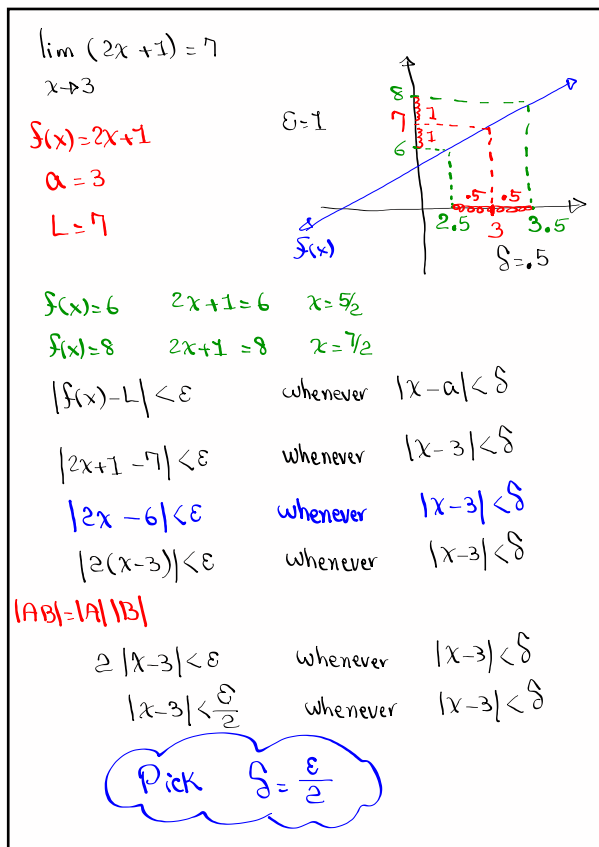 lim (2x + 1) = 7
x→3
f(x) = 2x+1
a = 3
L = 7
ε=1
8
1
7
1
6
.5 .5
2.5 3 3.5
f(x)
δ=.5
f(x)=6 2x+1=6 x=5/2
f(x)=8 2x+1=8 x=7/2
|f(x)-L|<ε whenever |x-a|<δ
|2x+1-7|<ε whenever |x-3|<δ
|2x-6|<ε whenever |x-3|<δ
|2(x-3)|<ε whenever |x-3|<δ
|AB|=|A||B|
2|x-3|<ε whenever |x-3|<δ
|x-3|<ε/2 whenever |x-3|<δ
Pick δ=ε/2